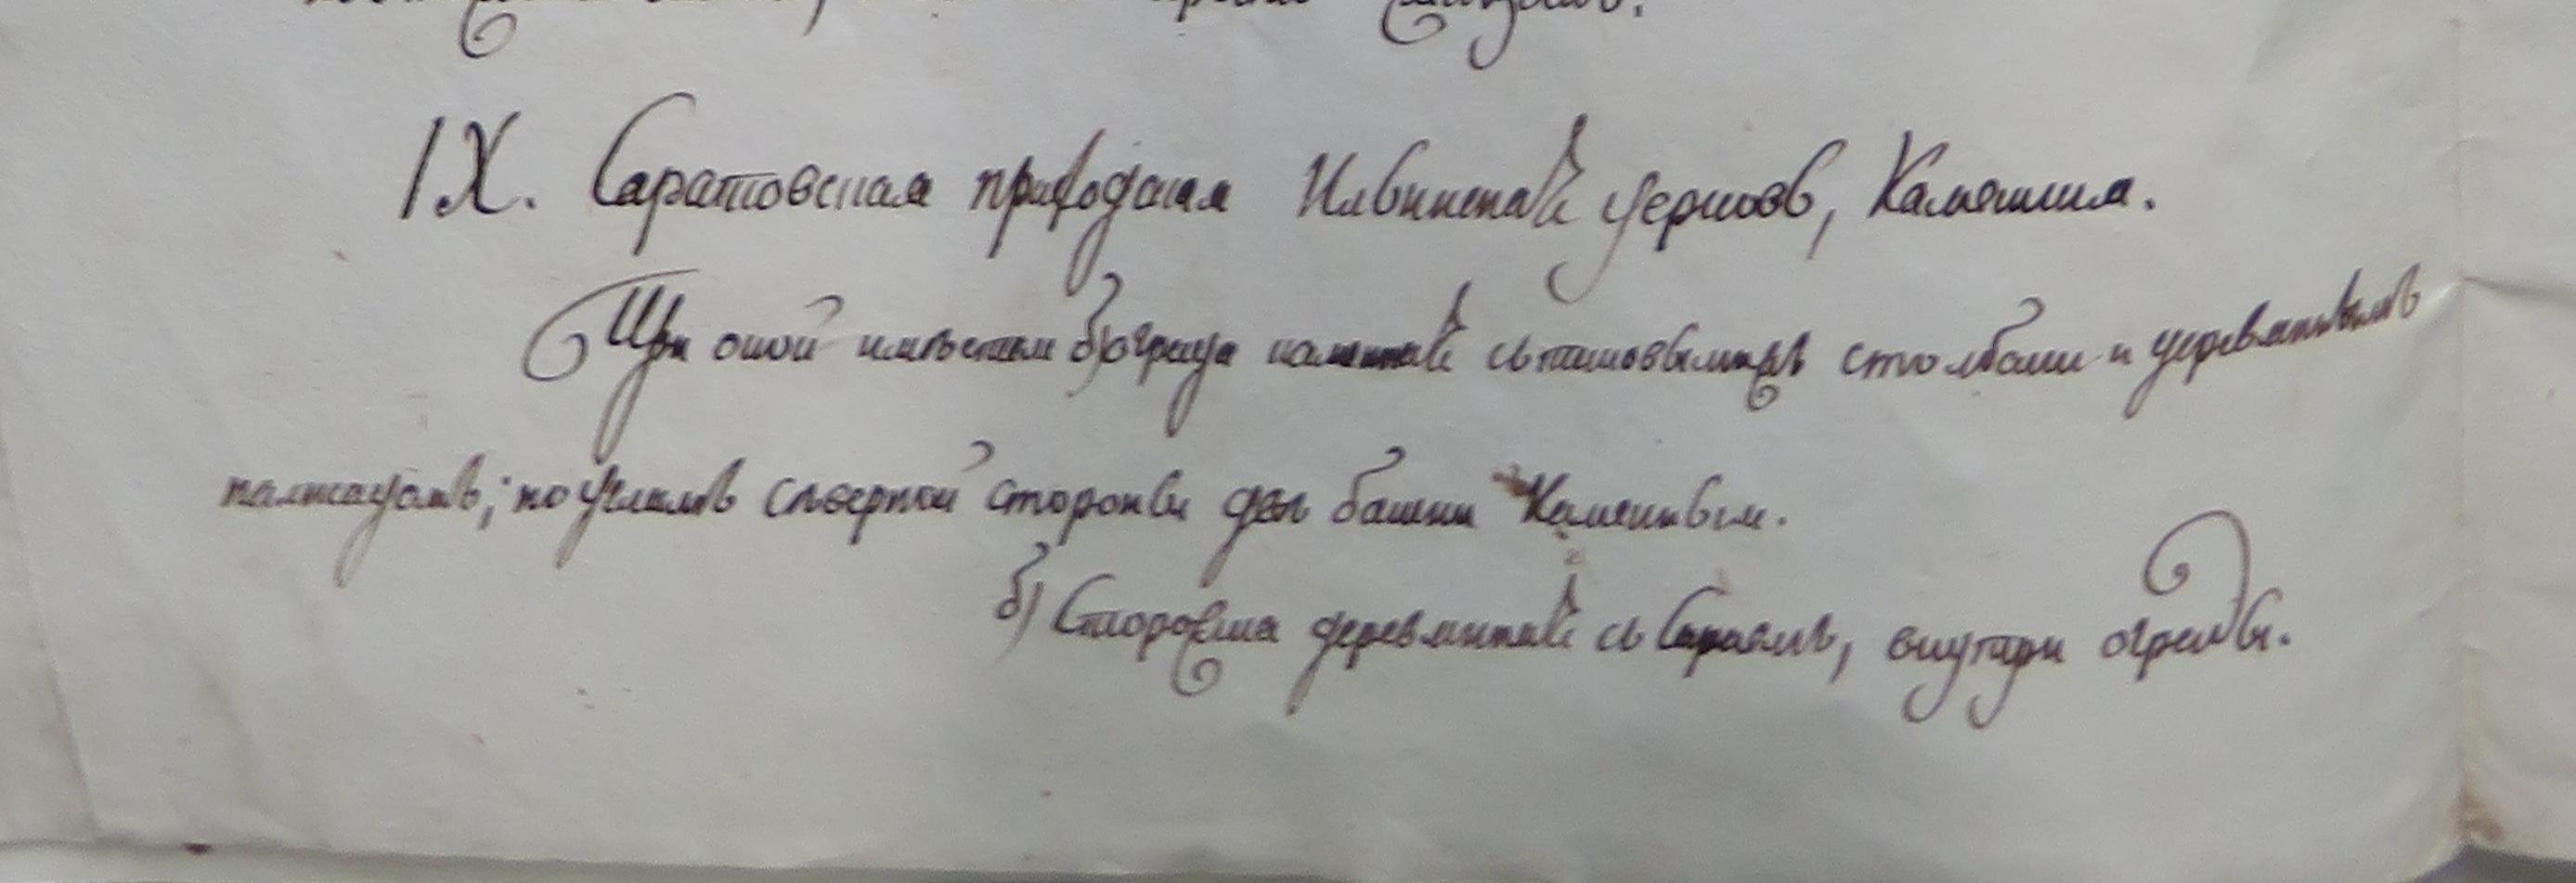 IX. Саратовская приходская Ильинская церковь, Каменная.
При оной имѣется а) ограда каменная съ таковымижъ столбами и деревяннымъ
палисадомъ; по угламъ сѣверной стороны двѣ башни Каменныя.
б) Сторожка деревянная съ Сараемъ, внутри ограды.